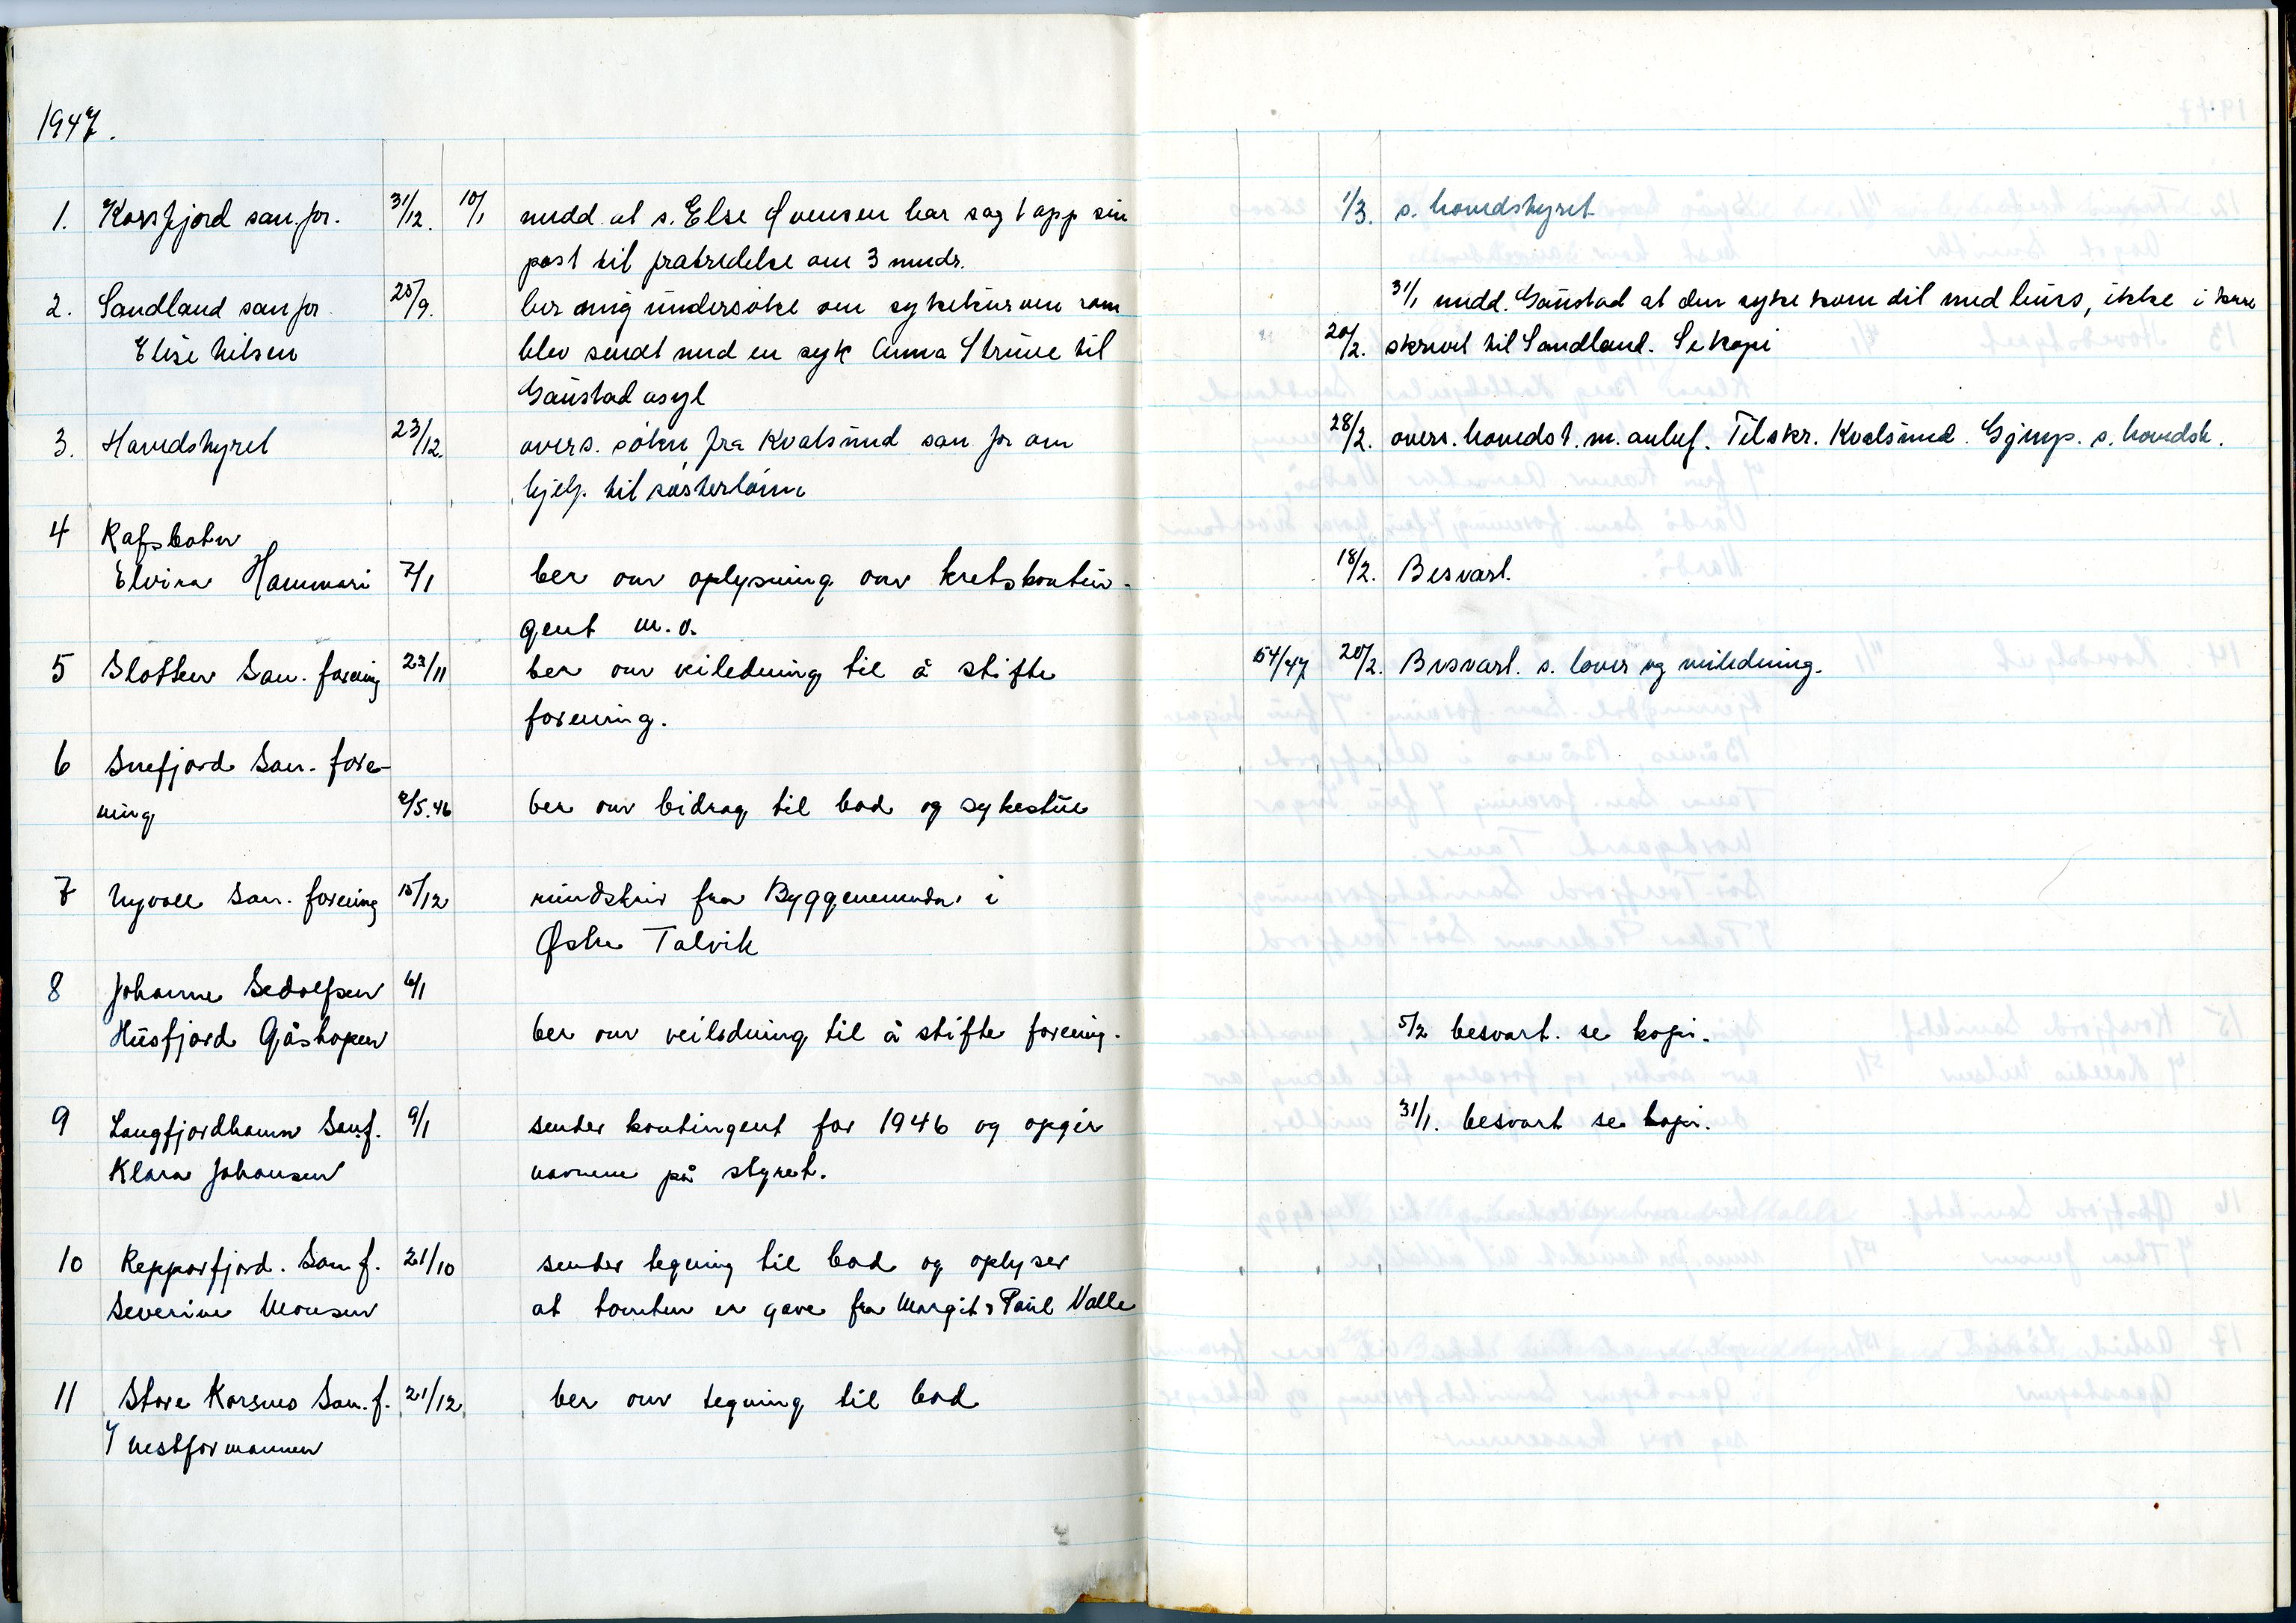 1947.
1. Korsfjord san.for. 31/12. 10/1 medd. at s. Else Svensen har sagt opp sin
post til fratredelse om 3 mndr.
2. Sandland san for 20/9. ber mig undersøke om sykekurven som
Elise Nilsen blev sendt med en syk Anna Strüve til
Gaustad asyl
3. Hovedstyret 23/12. overs. søkn fra Kvalsund san for om
hjelp. til søsterlønn
4 Rafsbotn
Elvira Hammari 7/1 ber om oplysning om kretskontin-
gent m.v.
5 Slotten San. forening 23/11 ber om veiledning til å stifte
forening.
6 Snefjord San. fore-
ning 2/5.46 ber om bidrag til bad og sykestue
7 Nyvoll San. forening 15/12 rundskriv fra Byggenemnda i
Østre Talvik
8 Johanne Sedolfsen 6/1
Husfjord Gåshopen ber om veiledning til å stifte forening.
9 Langfjordhamn San.f. 9/1 sender kontingent for 1946 og opgir
Klara Johansen navnene på styret.
10 Repparfjord. San f. 21/10 sender tegning til bad og oplyser
Severine Monsen at tomten er gave fra Margit & Paul Valle
11 Store Korsnes San. f. 21/12 ber om tegning til bad
v/ nestformannen
1/3. s. hovedstyret
31/1 medd. Gaustad at den syke kom dit med buss, ikke i
20/2. skrevet til Sandland. Se kopi
28/2. overs. hovedst. m. anbef. Tilskr. Kvalsund. Gjenp. s. hovedst.
18/2. Besvart.
54/47 20/2. Besvart. s. lover og veiledning.
5/2 besvart. se kopi.
31/1. besvart se kopi.